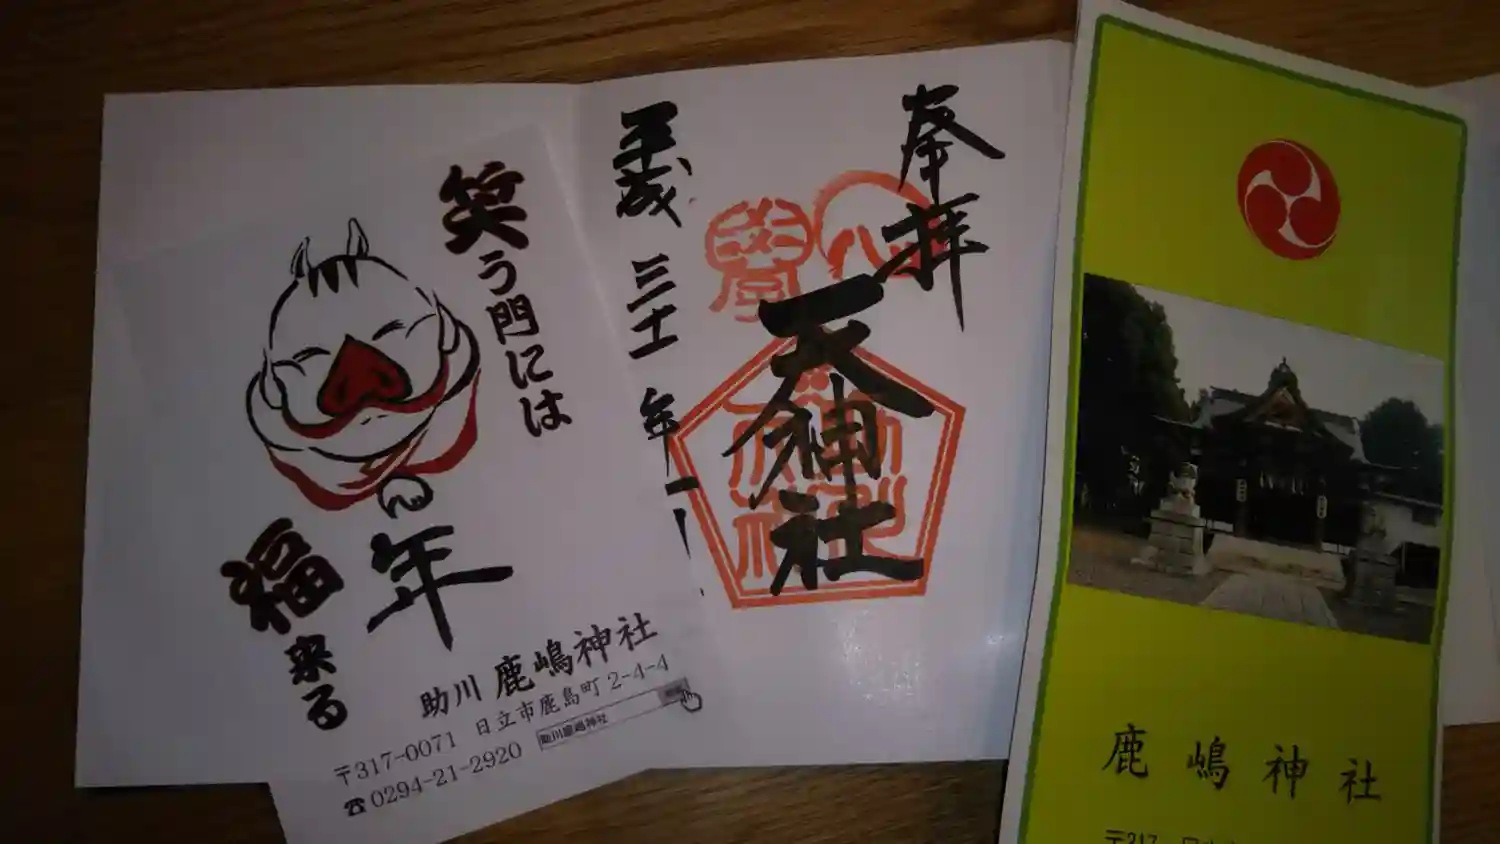 笑う門には
福来る
年
助川 鹿嶋神社
日立市鹿島町 2-4-4
助川鹿嶋神社
〒317-0071
☎ 0294-21-2920
奉拝
天神社
平成三十年
鹿嶋神社
〒317